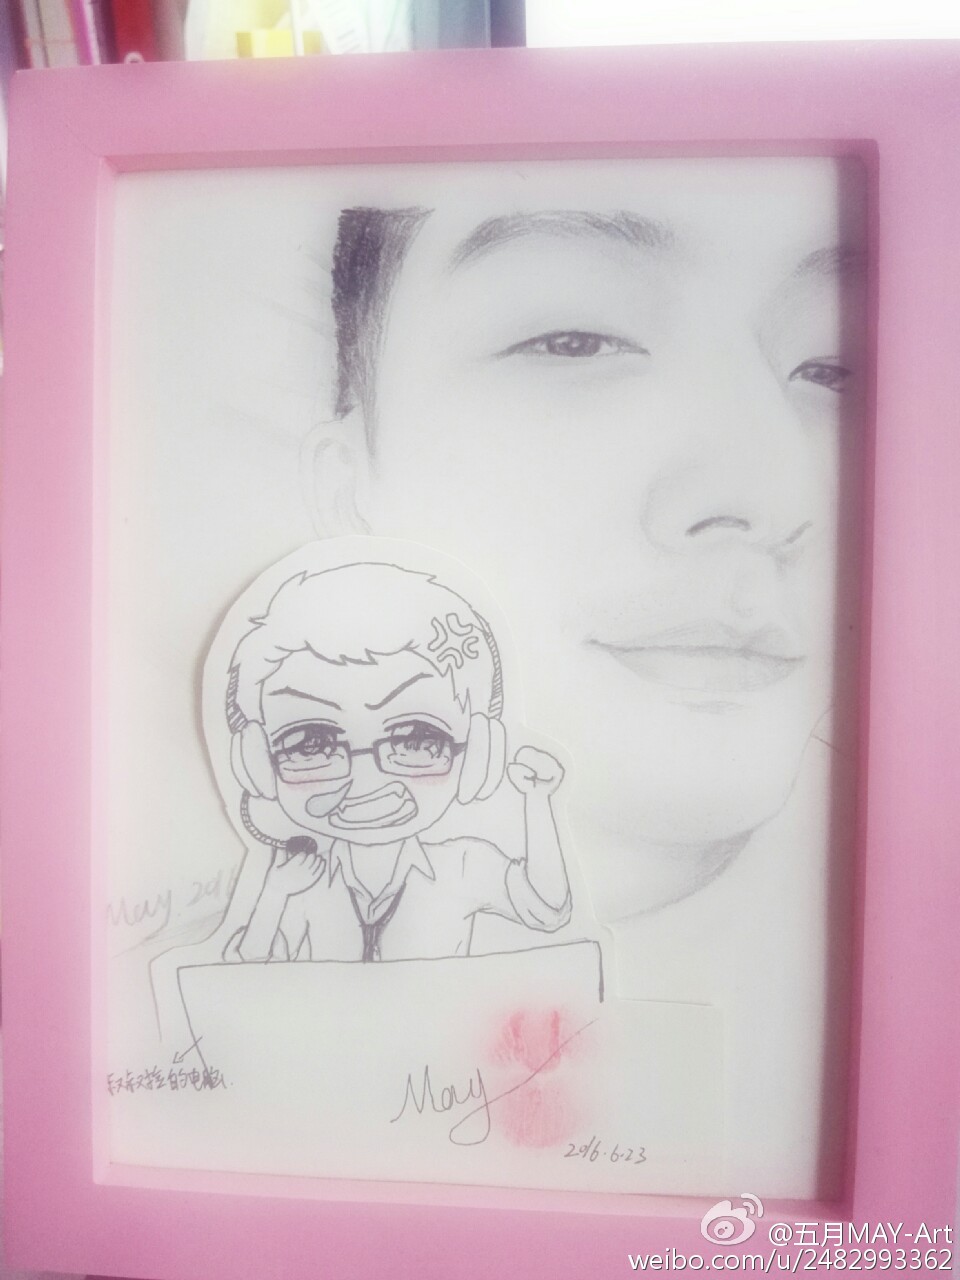 May.201
叔叔控的电脑.
May
2016.6.23
@五月MAY-Art
weibo.com/u/2482993362